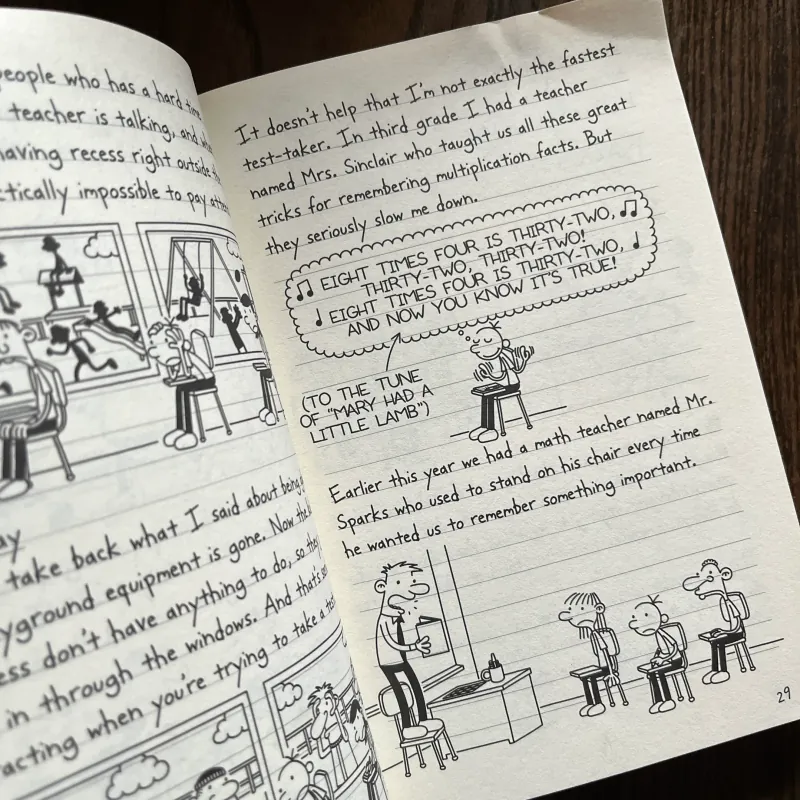 people who has a hard time
teacher is talking, and
having recess right outside
impossible to pay
take back what I said about being
equipment is gone. Now the
don't have anything to do, so
in through the windows. And that's
when you're trying to take a
It doesn't help that I'm not exactly the fastest
test-taker. In third grade I had a teacher
named Mrs. Sinclair who taught us all these great
tricks for remembering multiplication facts. But
they seriously slow me down.
EIGHT TIMES FOUR IS THIRTY-TWO,
THIRTY-TWO, THIRTY-TWO!
EIGHT TIMES FOUR IS THIRTY-TWO,
AND NOW YOU KNOW IT'S TRUE!
(TO THE TUNE
OF "MARY HAD A
LITTLE LAMB")
Earlier this year we had a math teacher named Mr.
Sparks who used to stand on his chair every time
he wanted us to remember something important.
29